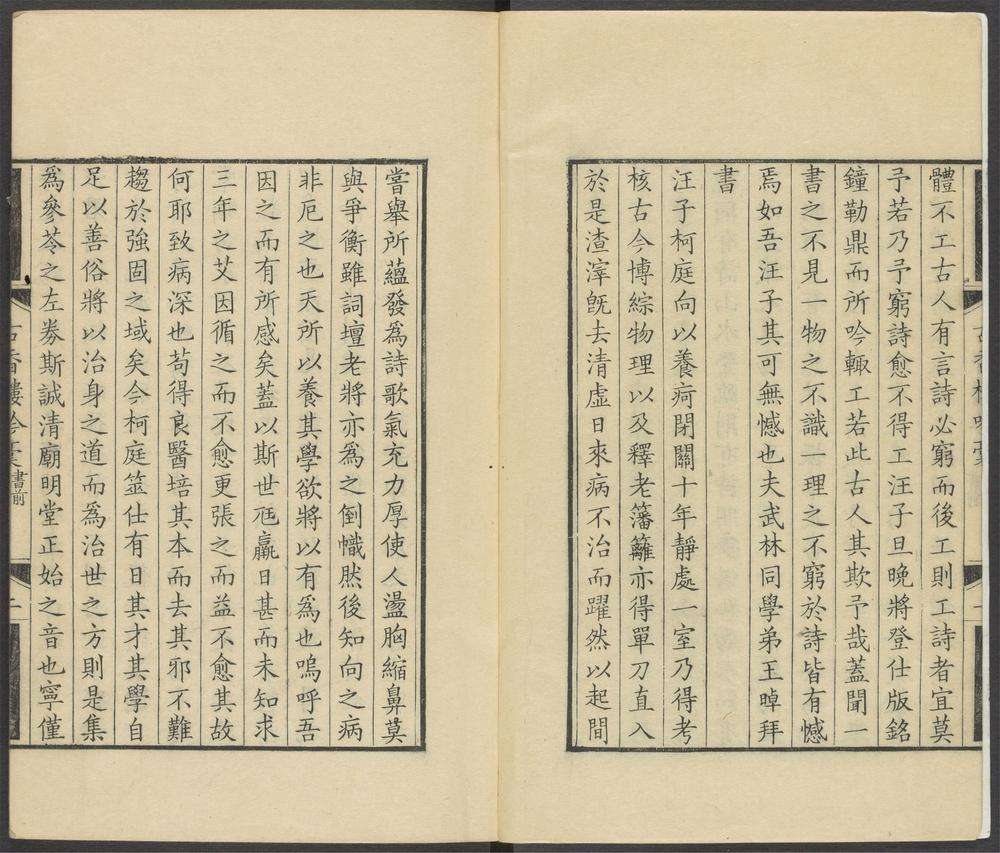 體不工古人有言詩必窮而後工則工詩者宜莫
予若乃予窮詩愈不得工汪子旦晚將登仕版銘
鐘勒鼎而所吟輙工若此古人其欺予哉蓋聞一
書之不見一物之不識一理之不窮於詩皆有憾
焉如吾汪子其可無憾也夫武林同學弟王晫拜
書
汪子柯庭向以養疴閉關十年靜處一室乃得考
核古今博綜物理以及釋老籓籬亦得單刀直入
於是渣滓旣去清虛日來病不治而躍然以起間
嘗舉所蘊發爲詩歌氣充力厚使人盪胸縮鼻莫
與爭衡雖詞壇老將亦爲之倒幟肰後知向之病
非厄之也天所以養其學欲將以有爲也嗚呼吾
因之而有所感矣蓋以斯世尫羸日甚而未知求
三年之艾因循之而不愈更張之而益不愈其故
何耶致病深也苟得良醫培其本而去其邪不難
趨於強固之域矣今柯庭筮仕有日其才其學自
足以善俗將以治身之道而爲治世之方則是集
爲參苓之左劵斯誠清廟明堂正始之音也寧僅
古香樓吟稾 書前 二